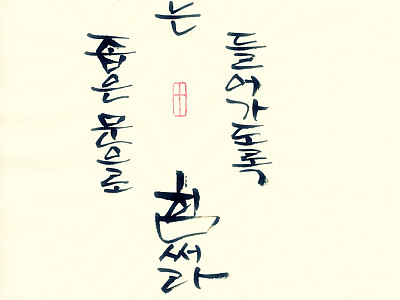 는
좁은 문으로
들어가도록
힘써라